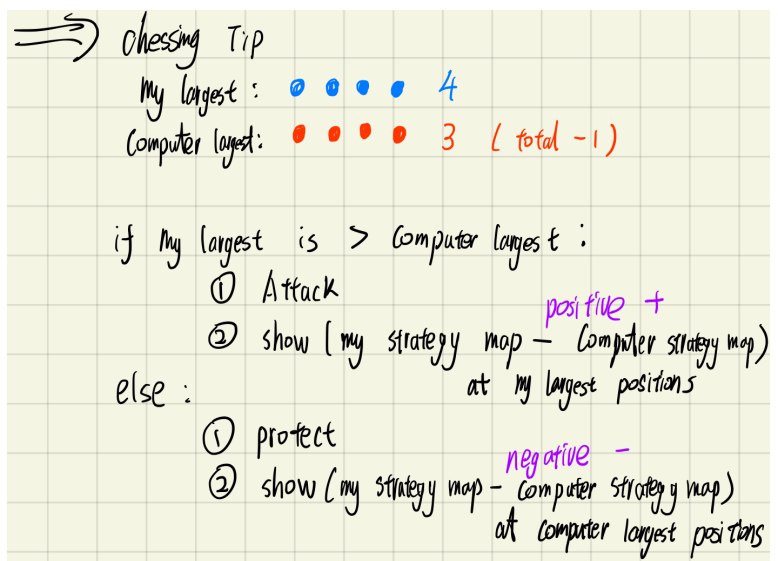 chessing Tip
My largest : 4
Computer largest: 3 ( total - 1 )
if My largest is > Computer largest :
① Attack
positive +
② show ( my strategy map - Computer strategy map )
at my largest positions
else :
① protect
negative -
② show ( my strategy map - Computer strategy map )
at computer largest positions